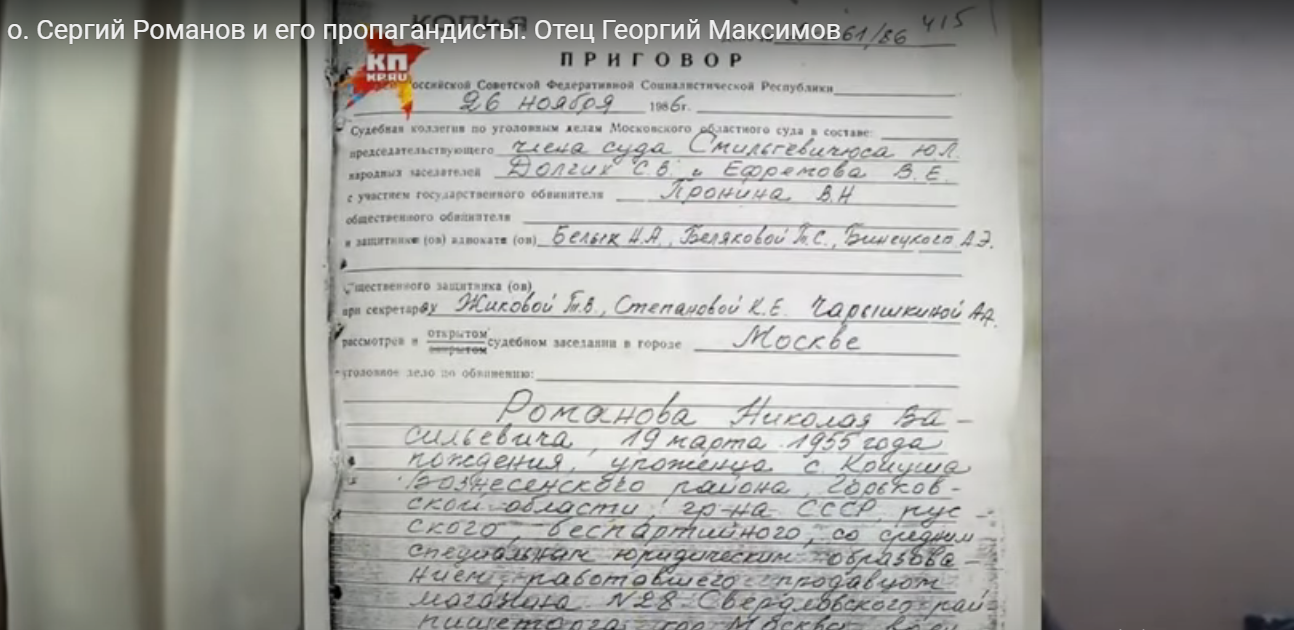 о. Сергий Романов и его пропагандисты. Отец Георгий Максимов
КОПИЯ
61/86 415
КП
KP.RU
ПРИГОВОР
оссийской Советской Федеративной Социалистической Республики
26 ноября 1986г.
Судебная коллегия по уголовным делам Московского областного суда в составе:
председательствующего члена суда Смильгевичюса Ю.Л.
народных заседателей Долгих С.В. и Ефремова В.Е.
с участием государственного обвинителя Пронина В.Н
общественного обвинителя
и защитников (ов) адвоката (ов) Белык Н.А., Беляковой Т.С., Бинецкого А.Э.
щественного защитника (ов)
при секретарях Жиковой Т.В., Степановой К.Е. Чарышкиной А.А.
рассмотрев в открытом закрытом судебном заседании в городе Москве
уголовное дело по обвинению:
Романова Николая Ва-
сильевича, 19 марта 1955 года
рождения, уроженца с. Криуша
Вознесенского района, Горьков-
ской области, гр-на СССР, рус-
ского, беспартийного, со средним
специальным юридическим образова-
нием, работавшего продавцом
магазина N28 Свердловского рай
пищеторга гор Москвы